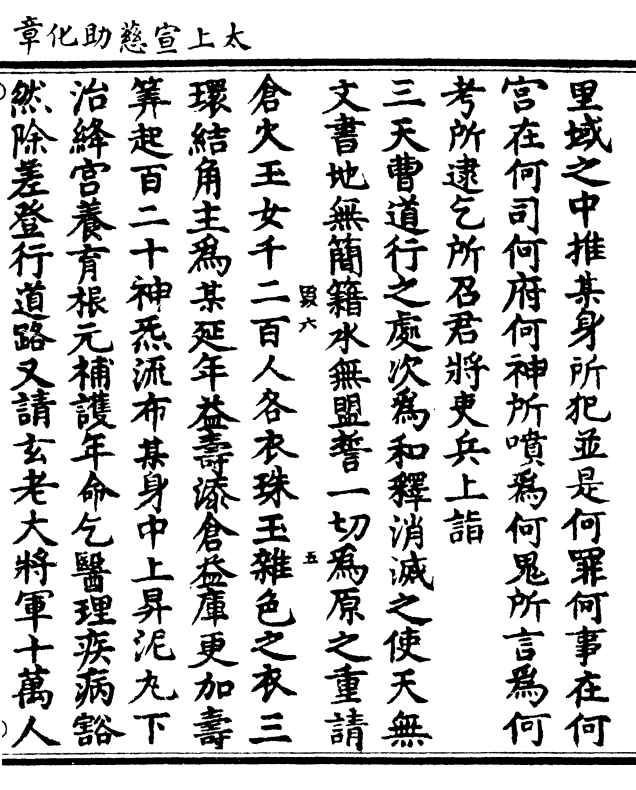 太上宣慈助化章
里域之中推某身所犯並是何罪何事在何
宫在何司何府何神所噴爲何鬼所言爲何
考所逮乞所召君將吏兵上詣
三天曹道行之處次爲和釋消滅之使天無
文書地無簡籍水無盟誓一切爲原之重請
毀六
五
倉火玉女千二百人各衣珠玉雜色之衣三
環結角主爲某延年益壽添倉益庫更加壽
筭起百二十神炁流布某身中上昇泥丸下
治絳宫養育根元補護年命乞醫理疾病豁
然除差登行道路又請玄老大將軍十萬人